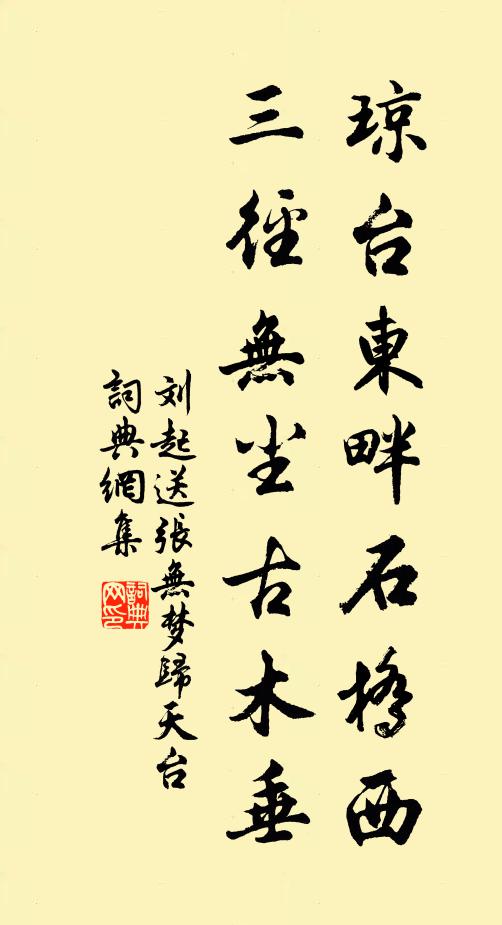 琼台東畔石橋西
三徑無尘古木垂
刘起送張無梦歸天台
詞典網集
詞典網印